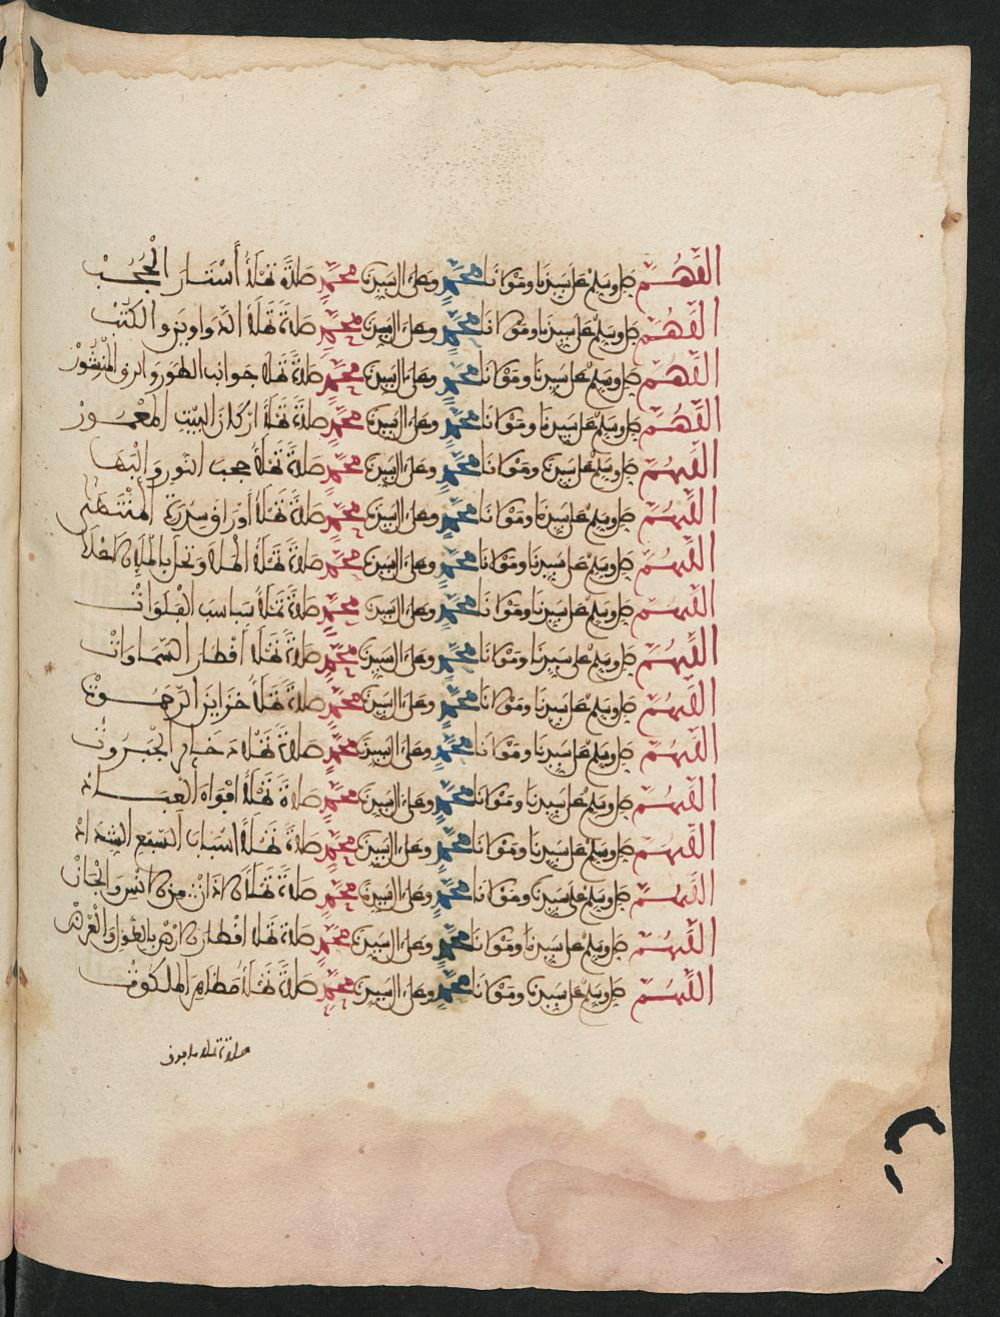 اللهم صل وسلم على سيدنا ومولانا محمد وعلى ال سيدنا محمد صلاة تملأ أستار الحجب
اللهم صل وسلم على سيدنا ومولانا محمد وعلى ال سيدنا محمد صلاة تملأ الدواوين والكتب
اللهم صل وسلم على سيدنا ومولانا محمد وعلى ال سيدنا محمد صلاة تملأ جوانب الطور والرق المنشور
اللهم صل وسلم على سيدنا ومولانا محمد وعلى ال سيدنا محمد صلاة تملأ اركان البيت المعمور
اللهم صل وسلم على سيدنا ومولانا محمد وعلى ال سيدنا محمد صلاة تملأ حجب النور والبها
اللهم صل وسلم على سيدنا ومولانا محمد وعلى ال سيدنا محمد صلاة تملأ أوراق سدرة المنتهى
اللهم صل وسلم على سيدنا ومولانا محمد وعلى ال سيدنا محمد صلاة تملأ
اللهم صل وسلم على سيدنا ومولانا محمد وعلى ال سيدنا محمد صلاة تملأ سباسب الفلوات
اللهم صل وسلم على سيدنا ومولانا محمد وعلى ال سيدنا محمد صلاة تملأ أقطار السماوات
اللهم صل وسلم على سيدنا ومولانا محمد وعلى ال سيدنا محمد صلاة تملأ خزاين الرحموت
اللهم صل وسلم على سيدنا ومولانا محمد وعلى ال سيدنا محمد صلاة تملأ الجبروت
اللهم صل وسلم على سيدنا ومولانا محمد وعلى ال سيدنا محمد صلاة تملأ افواه العباد
اللهم صل وسلم على سيدنا ومولانا محمد وعلى ال سيدنا محمد صلاة تملأ السبع الشداد
اللهم صل وسلم على سيدنا ومولانا محمد وعلى ال سيدنا محمد صلاة تملأ من الانس والجان
اللهم صل وسلم على سيدنا ومولانا محمد وعلى ال سيدنا محمد صلاة تملأ اقطار الارض بالطول والعرض
اللهم صل وسلم على سيدنا ومولانا محمد وعلى ال سيدنا محمد صلاة تملأ مظاهر الملكوت
صلاة تملأ